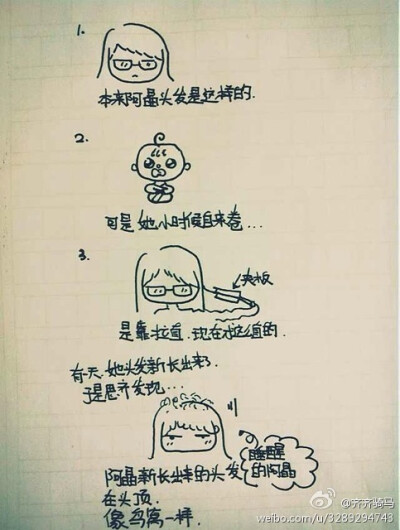 1.
本来阿晶头发是这样的.
2.
可是她小时候自来卷...
3.
夹板
是靠拉直.现在才这么直的.
有一天.她头发新长出来了.
于是思齐发现...
睡醒
的阿晶
阿晶新长出来的头发
在头顶.
像鸟窝一样.
@齐齐骑马
weibo.com/u/3289294743